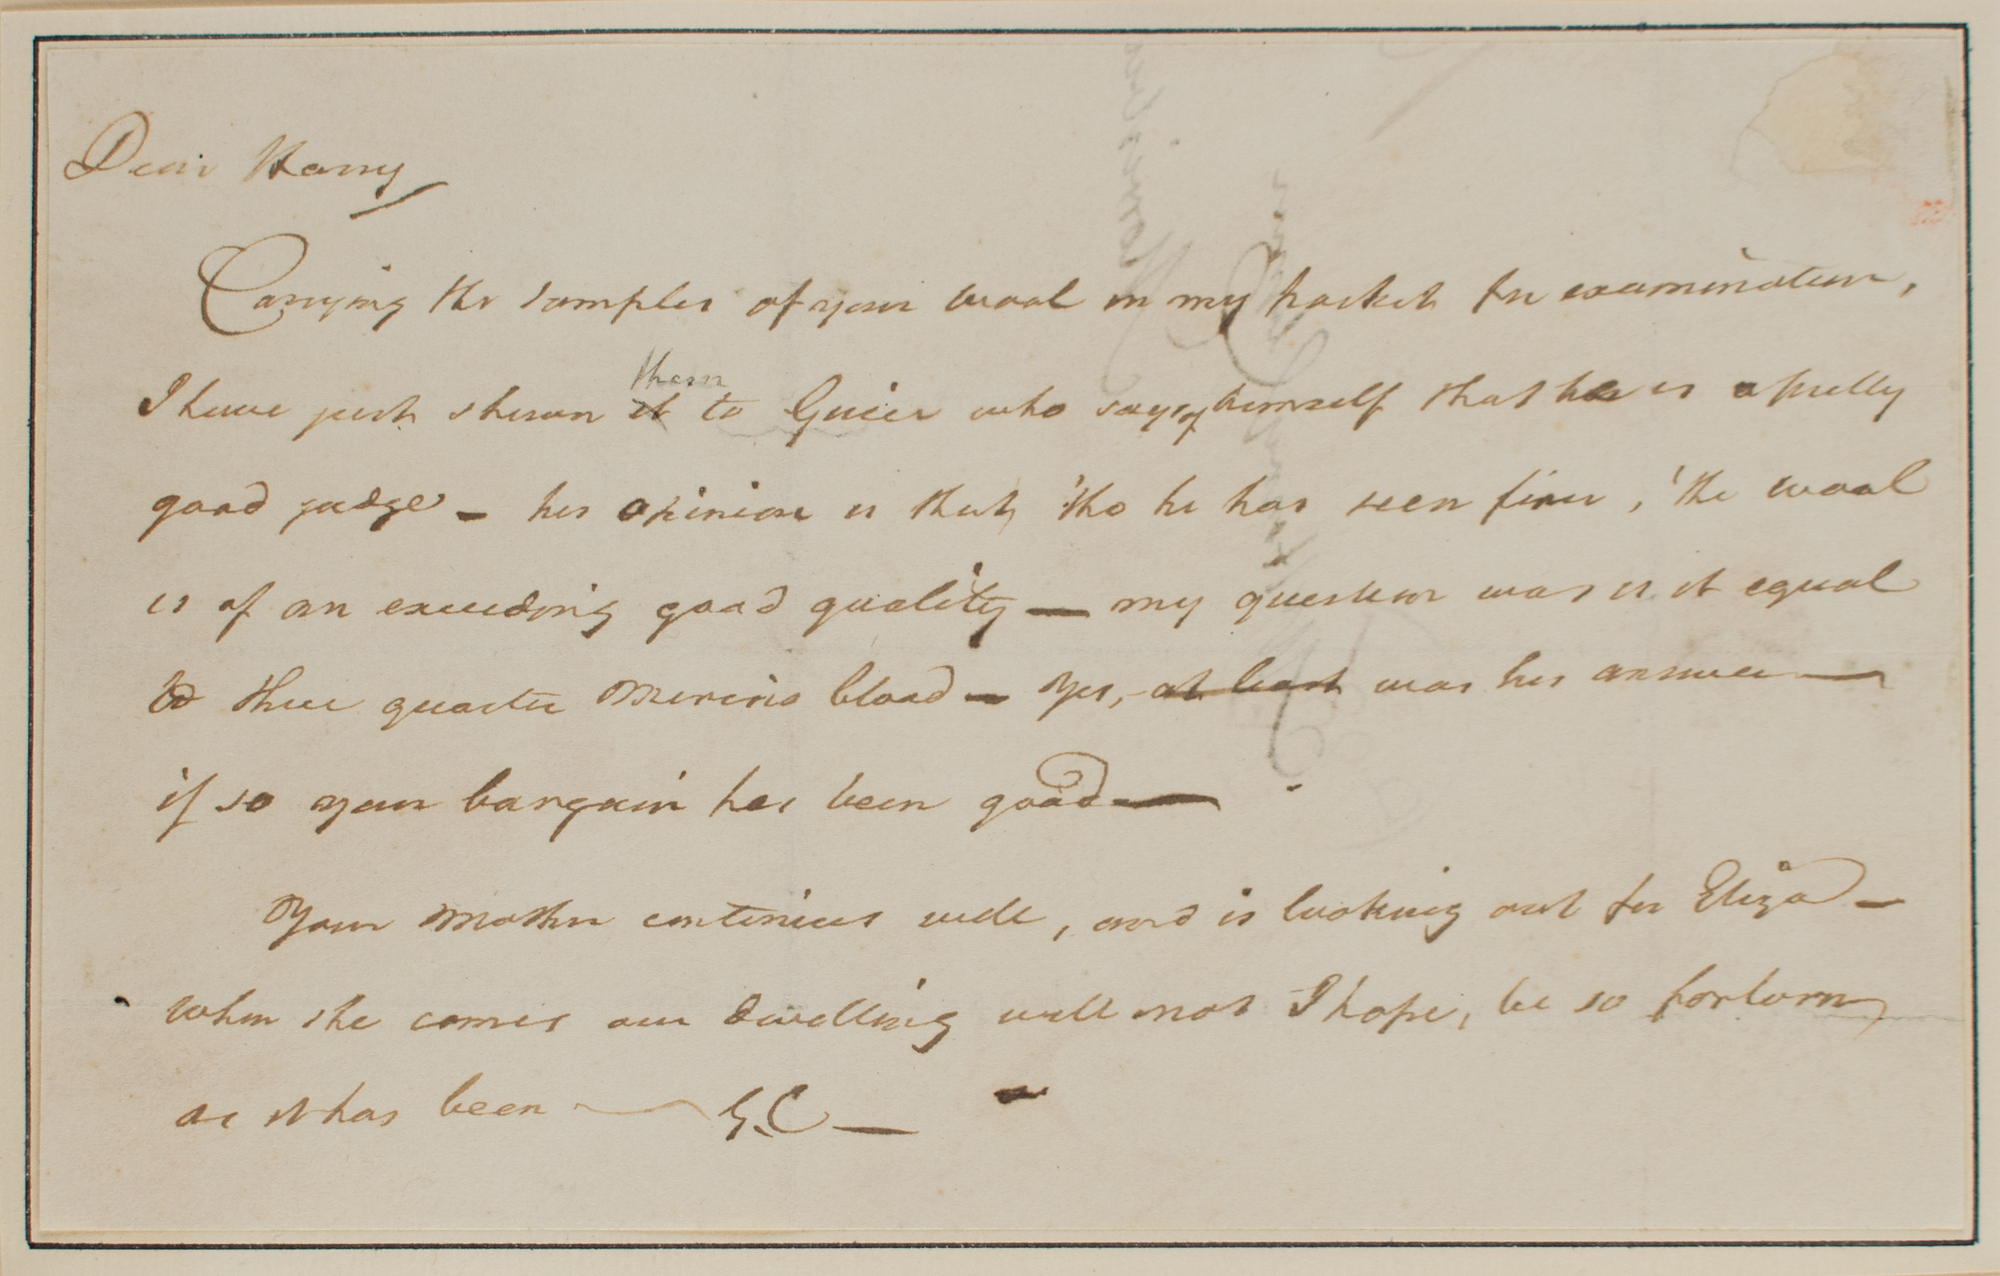 Dear Harry
Carrying the samples of your wool in my pocket for examination,
I have just shewn them to Grier who says of himself that he is a pretty
good judge — his opinion is that, 'tho he has seen finer, 'the wool
is of an exceeding good quality — my question was is it equal
to three quarter Merino blood — Yes, at least was his answer —
if so your bargain has been good —
Your Mother continues well, and is looking out for Eliza —
when she comes our dwelling will not I hope, be so forlorn
as it has been — G.C —